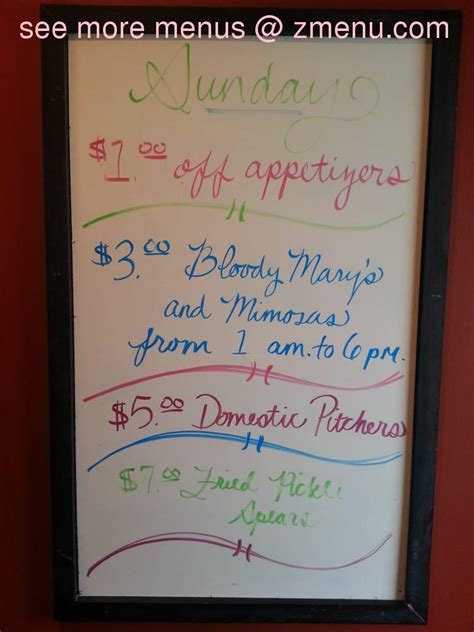 see more menus @ zmenu.com
Sunday
$1.00 off appetizers
$3.00 Bloody Mary's
and Mimosas
from 1 am. to 6 pm.
$5.00 Domestic Pitchers
$7.00 Fried Pickle
Spears